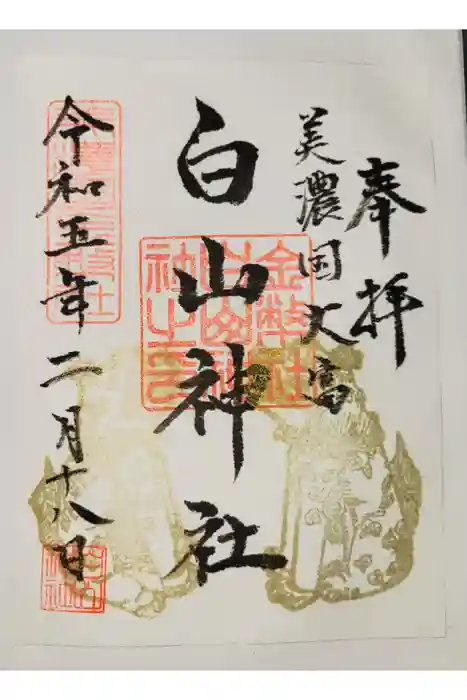 奉拝
美濃国大富
白山神社
金幣社白山神社之印
令和五年二月十八日
白山神社